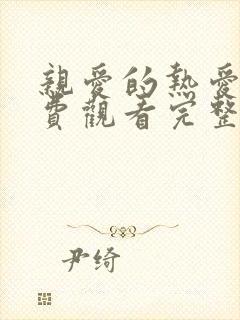 親愛的熱愛
費觀看完整
尹绮